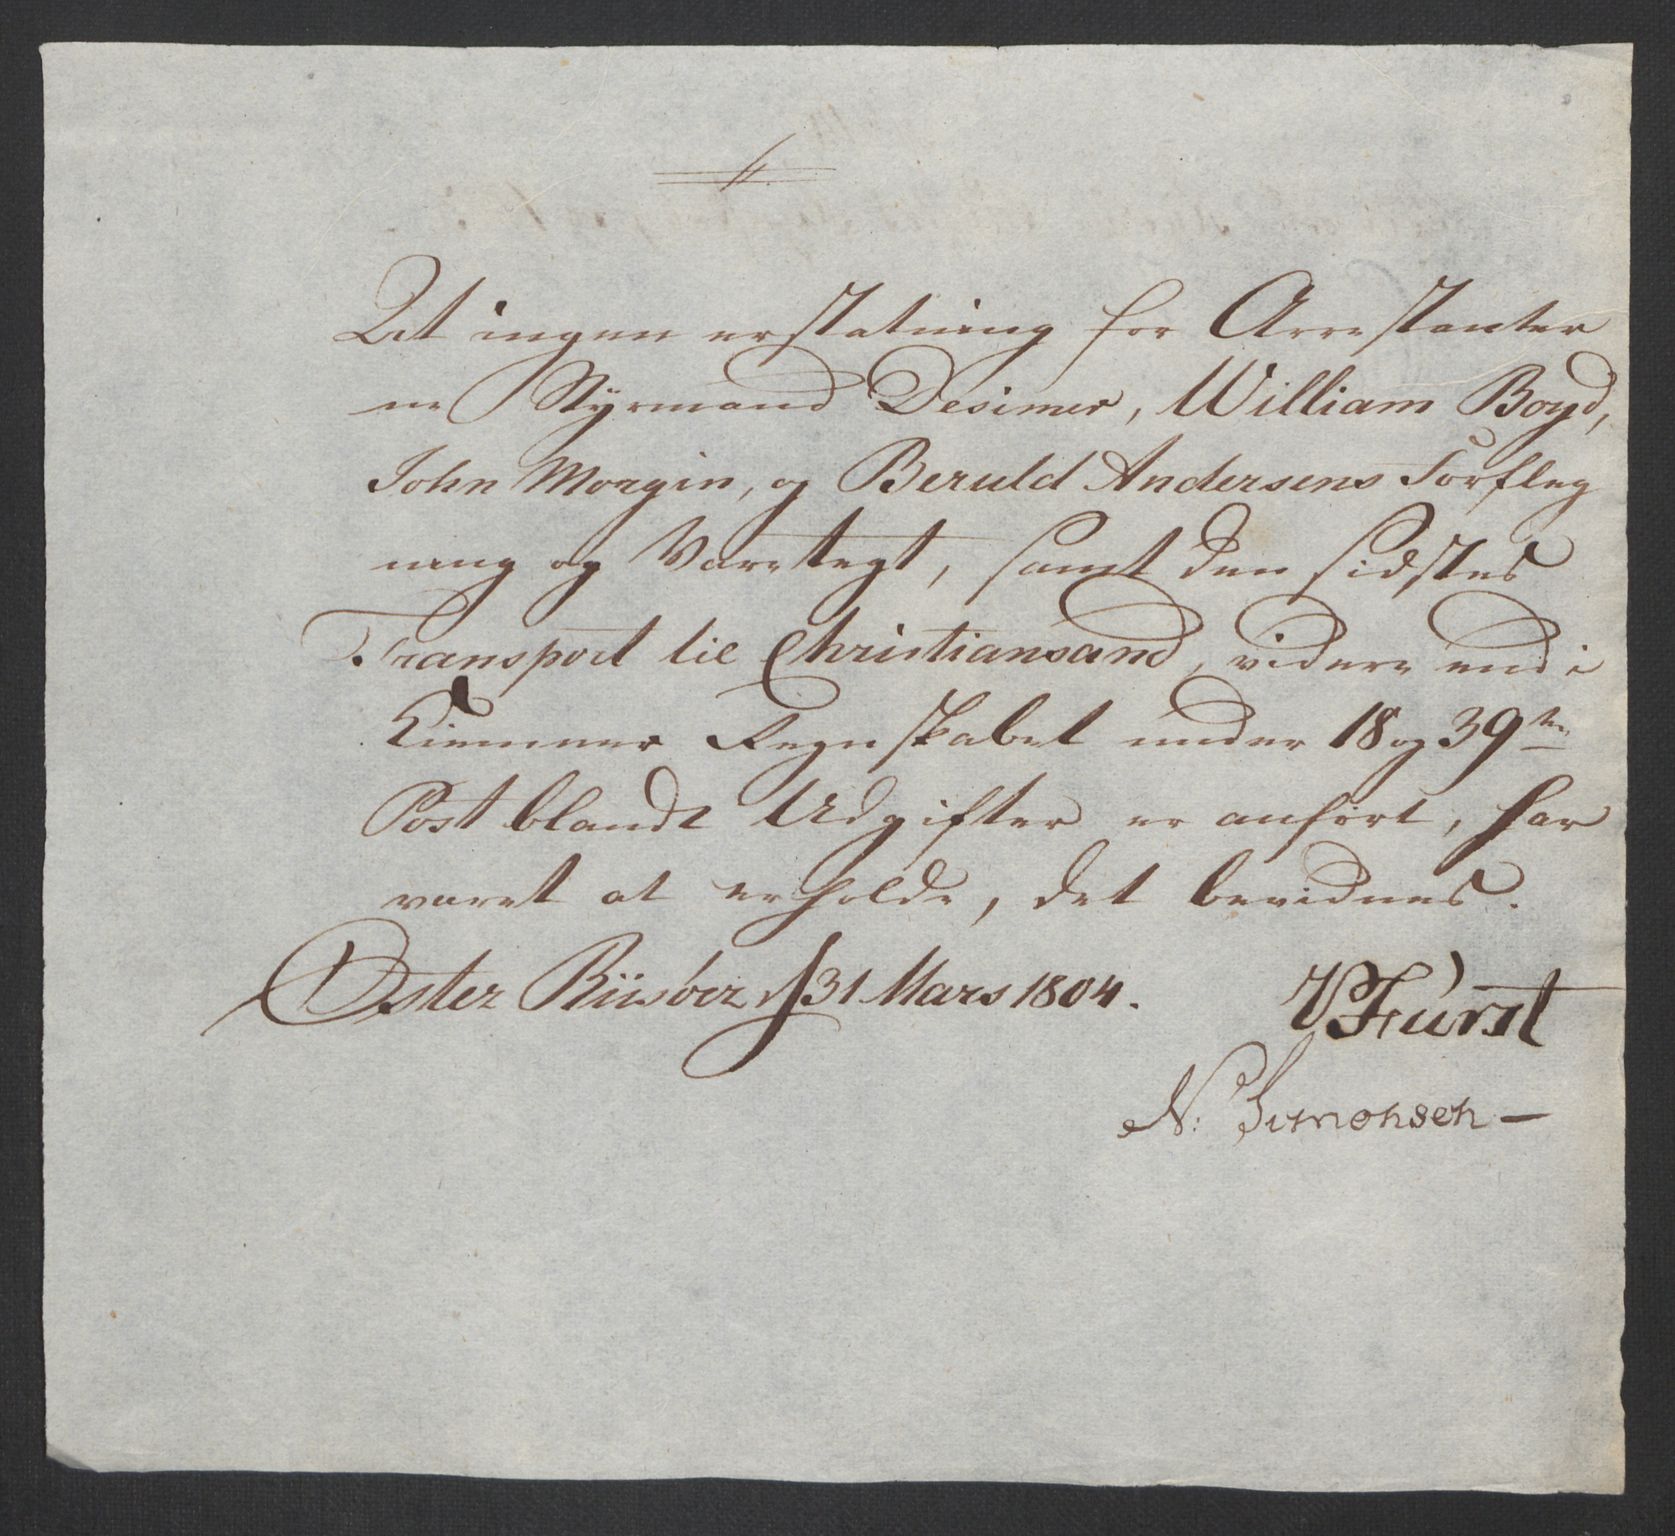 At ingen erstatning for Arrestanter
ne Styrmand Desimer, William Boyd,
John Morgin, og Beruld Andersens Forfleg
ning og Varetegt, samt den sidstes
Transport til Christiansand, videre end i
Kiemner Regnskabet under 18 og 39te
Post blandt Udgifter er anført, har
været at erholde, det bevidnes.
Øster Riisöer d 31 Mars 1804.
Fürst
N: Simonsen —